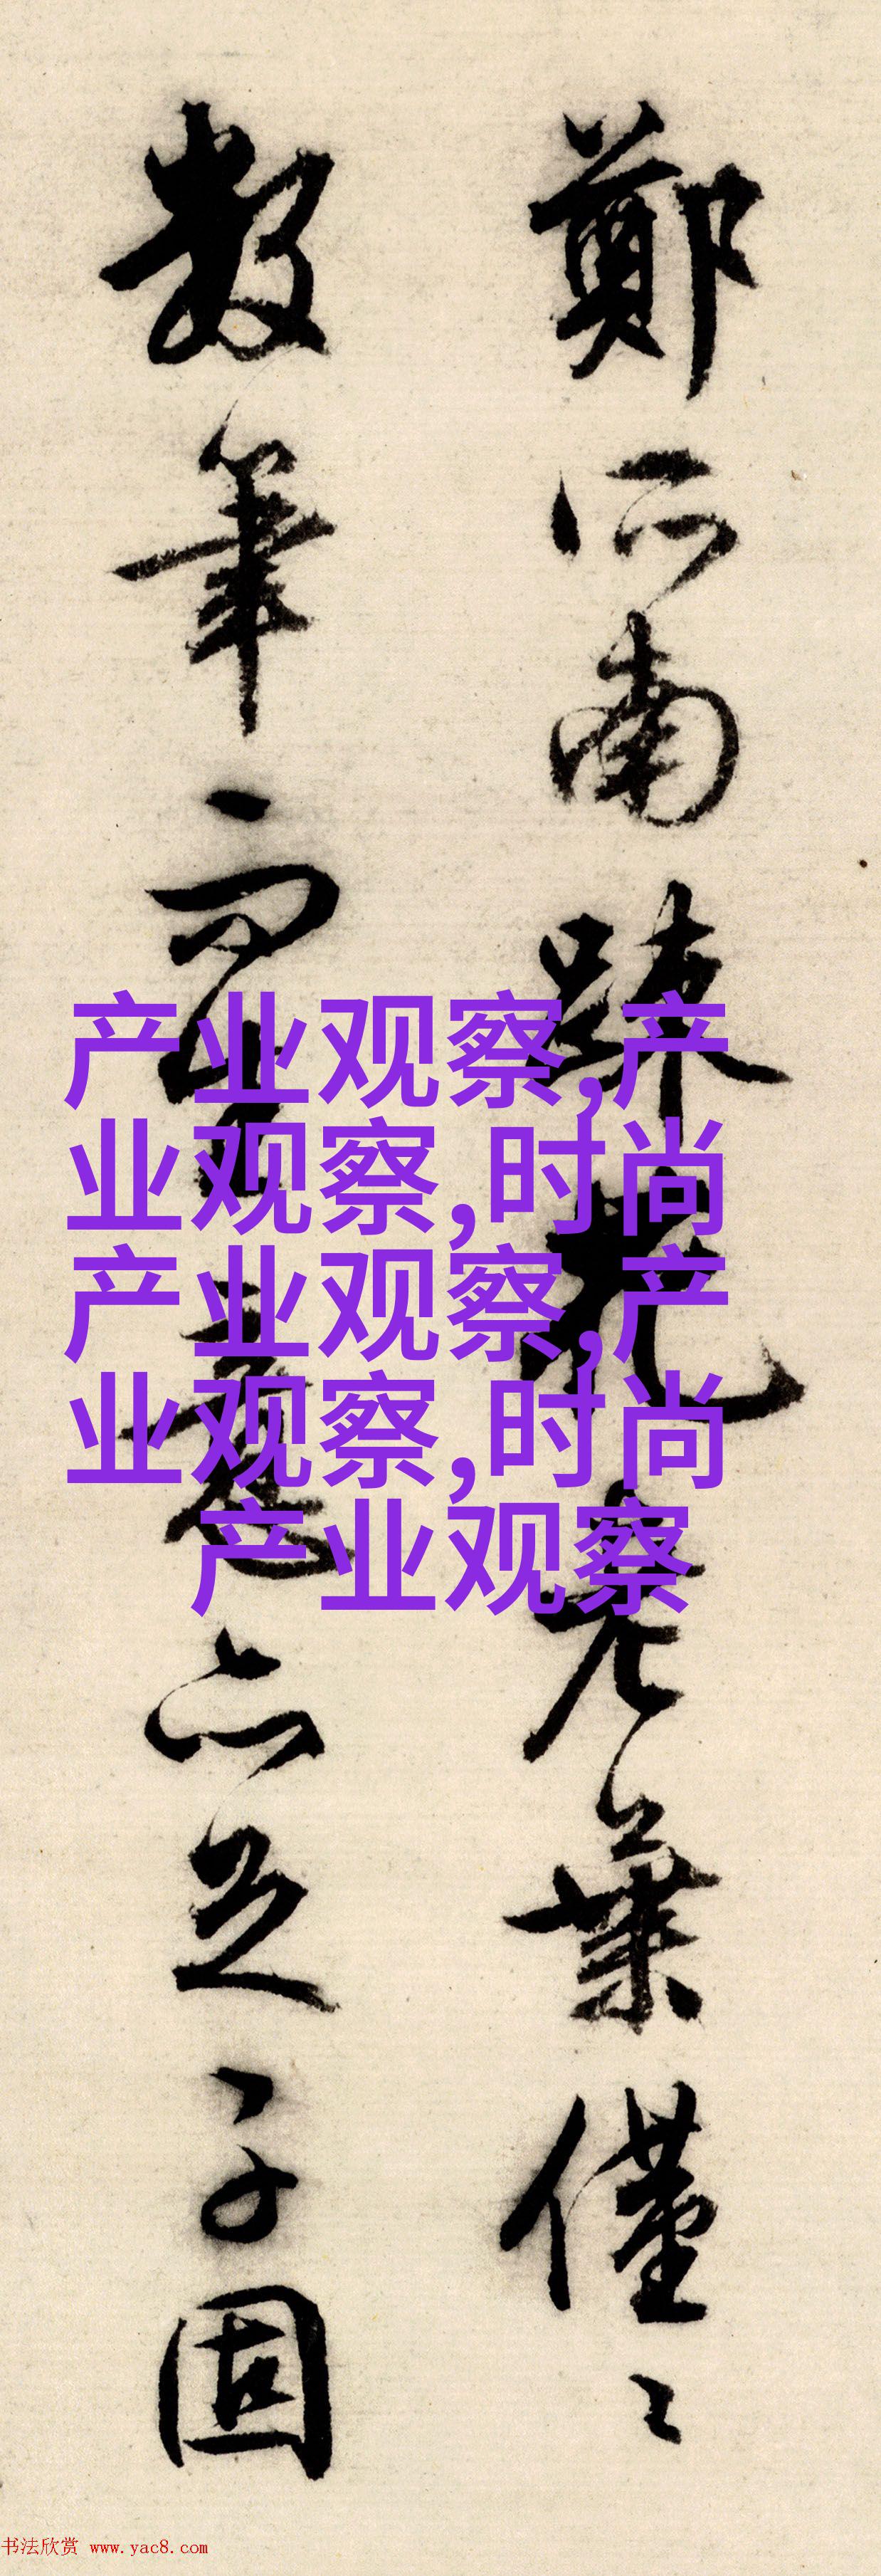 鄭所南疎花老葉僅〻
數筆而生意亦足子固
产业观察,产
业观察,时尚
产业观察,产
业观察,时尚
产业观察
书法欣赏 www.yac8.com